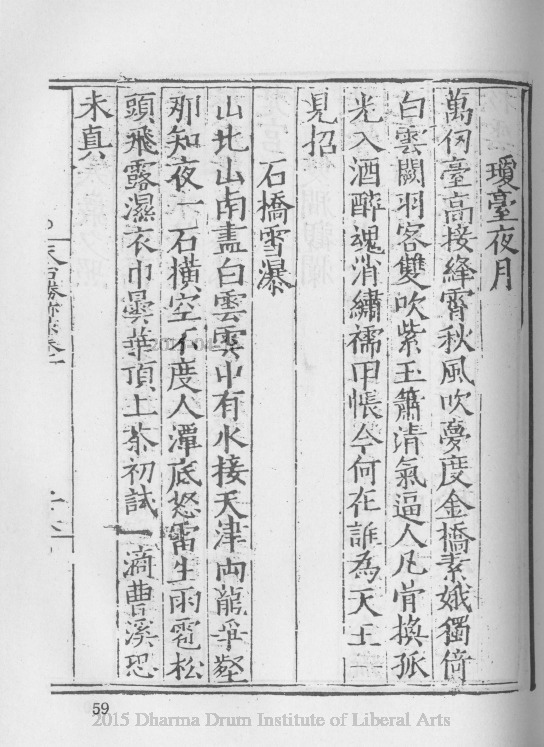 瓊臺夜月
萬仞臺高接絳霄秋風吹夢度金橋素娥獨倚
白雲闕羽客雙吹紫玉簫清氣逼人凡骨換孤
光入酒醉魂消繡襦甲帳今何在誰為天王一
見招
石橋雪瀑
山北山南盡白雲雲中有水接天津兩龍爭壑
那知夜一石橫空不度人潭底怒雷生雨雹松
頭飛露濕衣巾曇華頂上茶初試一滴曹溪恐
未真
天台勝蹟錄卷一
59
2015 Dharma Drum Institute of Liberal Arts